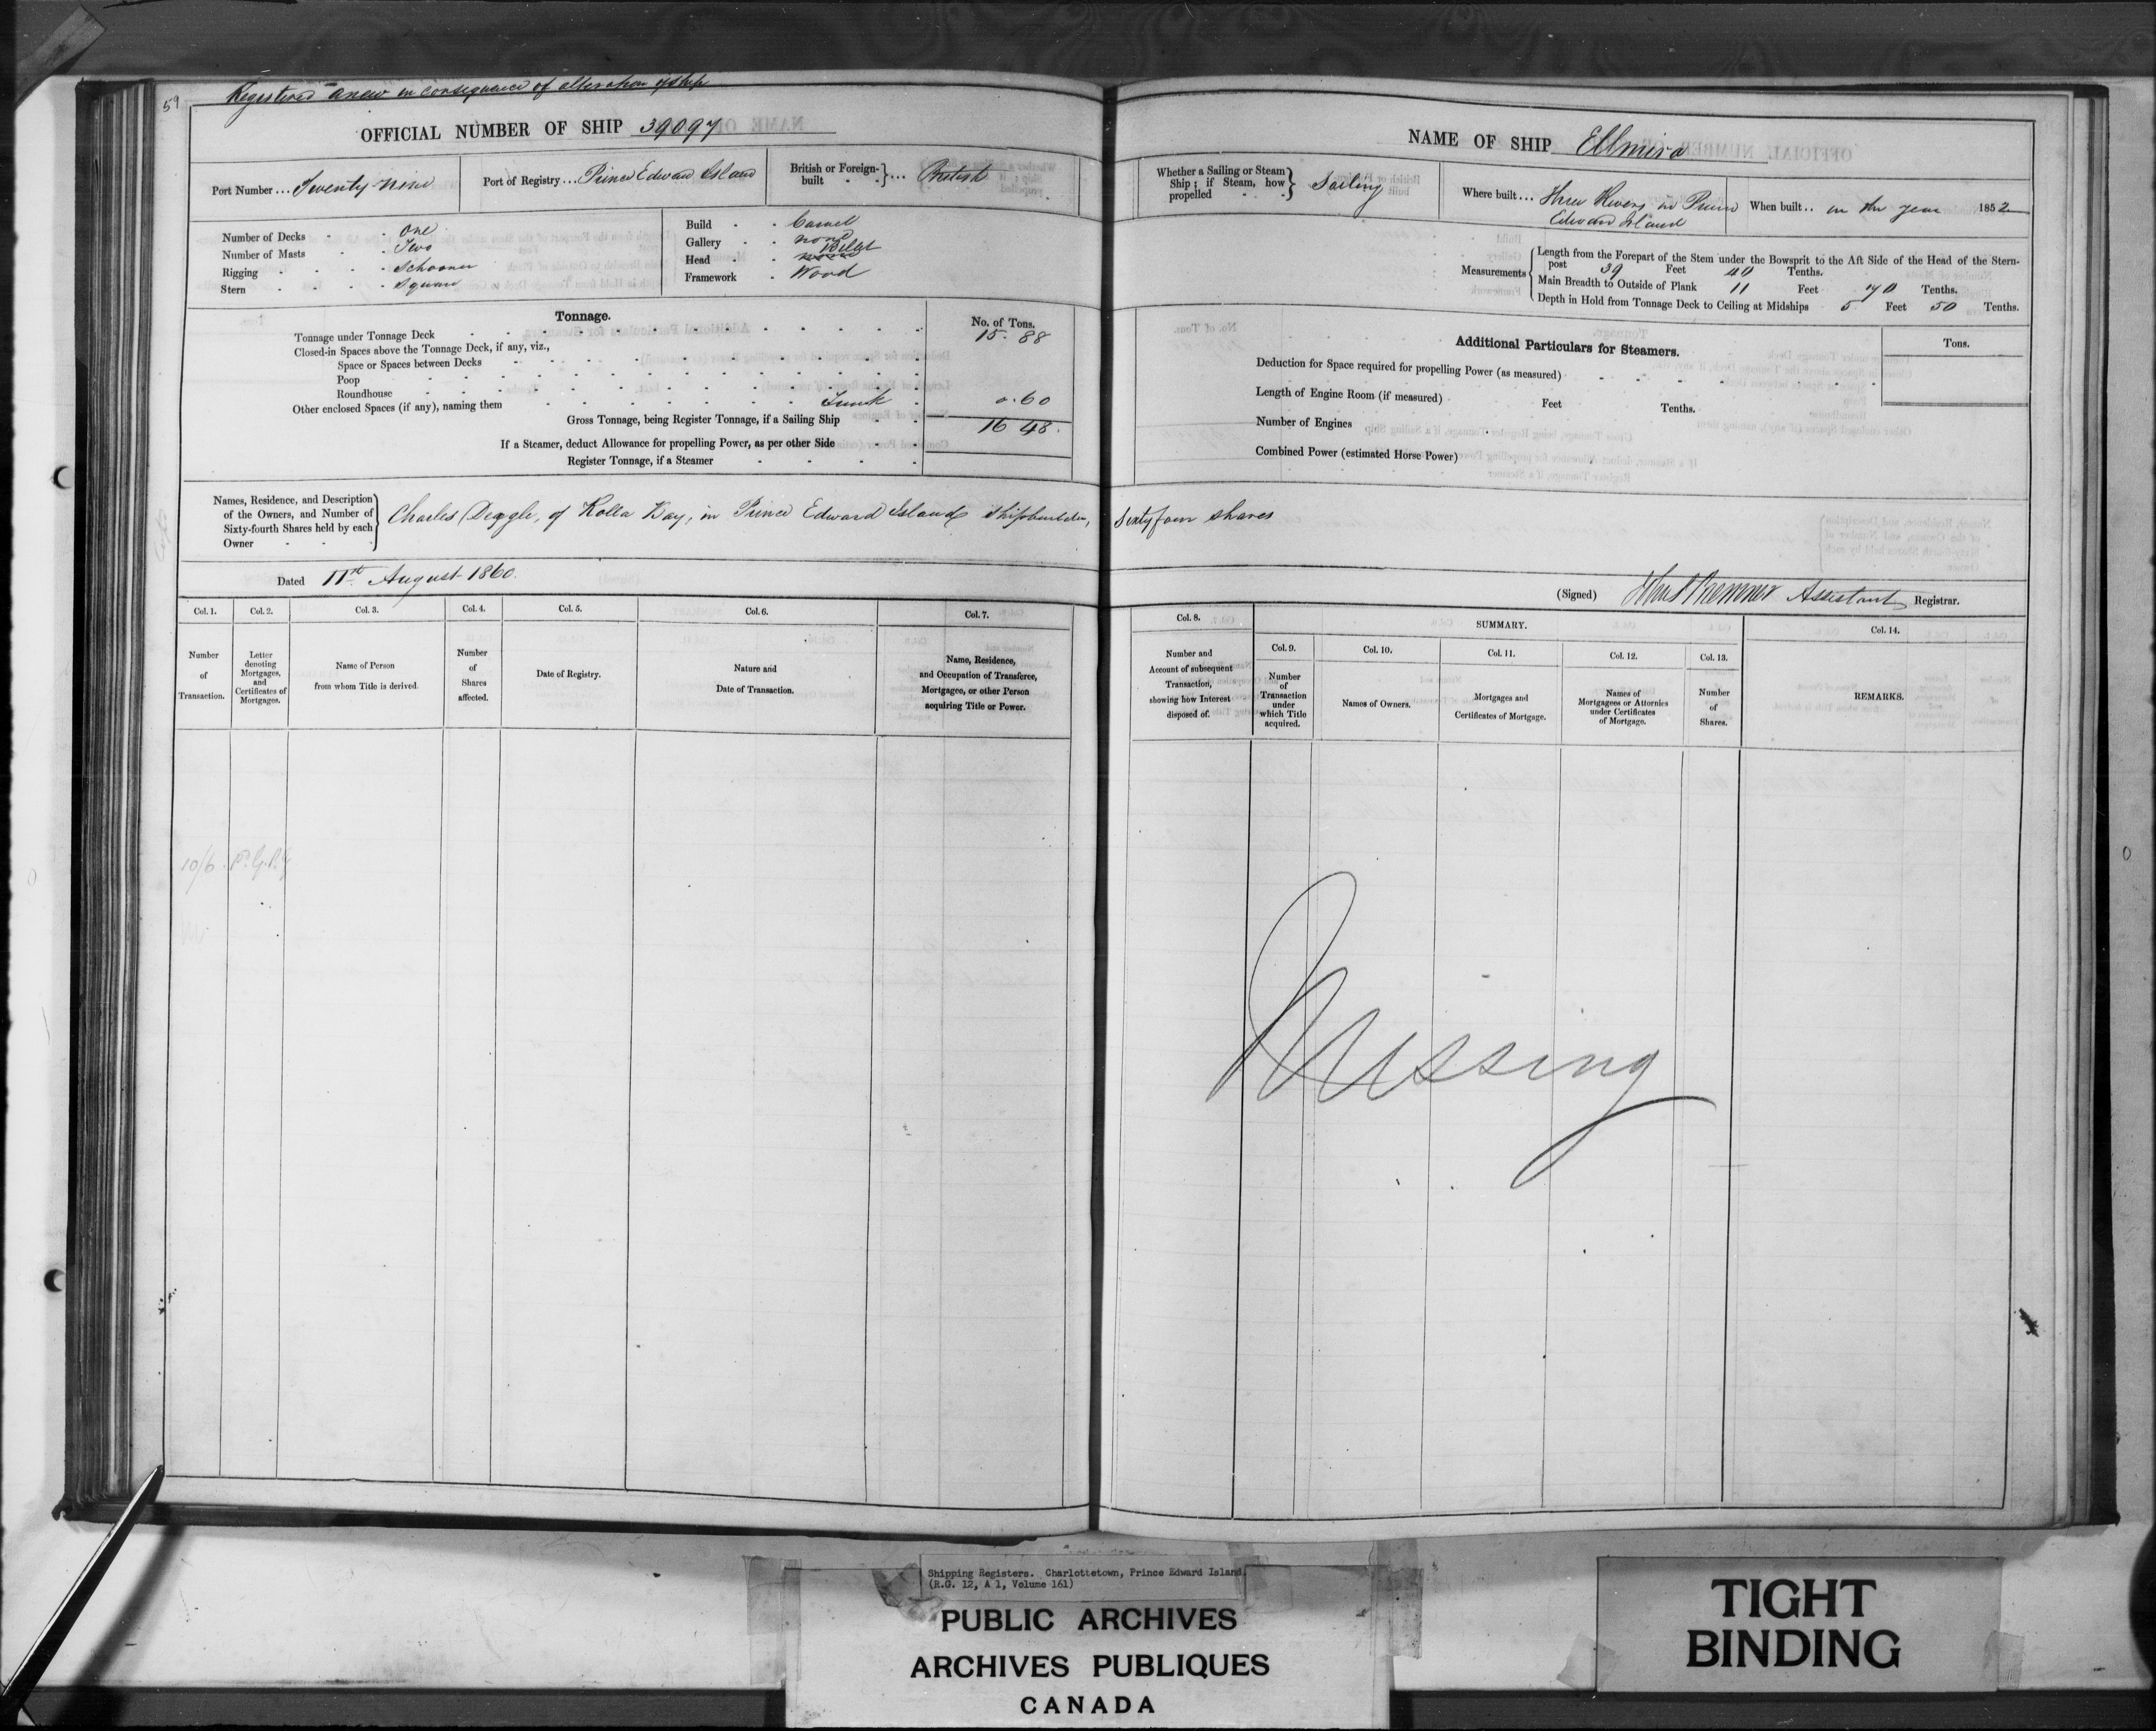 59
Registered anew in consequence of alteration of ship
OFFICIAL NUMBER OF SHIP 39097
Port Number ... Twenty nine
Port of Registry ... Prince Edward Island
British or Foreign-built } ... British
Number of Decks - - One
Number of Masts - - Two
Rigging - - - - Schooner
Stern - - - - Square
Build - - Carvel
Gallery - - none
Head - - Billet
Framework - Wood
Tonnage.
No. of Tons.
Tonnage under Tonnage Deck 15. 88
Closed-in Spaces above the Tonnage Deck, if any, viz.,
Space or Spaces between Decks
Poop
Roundhouse
Other enclosed Spaces (if any), naming them Trunk 0.60
Gross Tonnage, being Register Tonnage, if a Sailing Ship 16 48.
If a Steamer, deduct Allowance for propelling Power, as per other Side
Register Tonnage, if a Steamer
NAME OF SHIP Ellmira
Whether a Sailing or Steam Ship; if Steam, how propelled } Sailing
Where built ... Three Rivers in Prince
Edward Island
When built .. in the year 1852
Measurements
Length from the Forepart of the Stem under the Bowsprit to the Aft Side of the Head of the Stern-
post 39 Feet 40 Tenths.
Main Breadth to Outside of Plank 11 Feet 70 Tenths.
Depth in Hold from Tonnage Deck to Ceiling at Midships 5 Feet 50 Tenths.
Additional Particulars for Steamers.
Tons.
Deduction for Space required for propelling Power (as measured)
Length of Engine Room (if measured) Feet Tenths.
Number of Engines
Combined Power (estimated Horse Power)
Names, Residence, and Description
of the Owners, and Number of
Sixty-fourth Shares held by each
Owner
Charles Deagle, of Rollo Bay, in Prince Edward Island Shipbuilder, Sixty four shares
Dated 11th August 1860.
(Signed) Assistant Registrar.
Col. 1. Col. 2. Col. 3. Col. 4. Col. 5. Col. 6. Col. 7.
Number
of
Transaction.
Letter
denoting
Mortgages,
and
Certificates of
Mortgages.
Name of Person
from whom Title is derived.
Number
of
Shares
affected.
Date of Registry.
Nature and
Date of Transaction.
Name, Residence,
and Occupation of Transferee,
Mortgagee, or other Person
acquiring Title or Power.
Col. 8.
Number and
Account of subsequent
Transaction,
showing how Interest
disposed of.
SUMMARY.
Col. 9.
Number
of
Transaction
under
which Title
acquired.
Col. 10.
Names of Owners.
Col. 11.
Mortgages and
Certificates of Mortgage.
Col. 12.
Names of
Mortgagees or Attornies
under Certificates
of Mortgage.
Col. 13.
Number
of
Shares.
Col. 14.
REMARKS.
10/6
Missing
Shipping Registers. Charlottetown, Prince Edward Island.
(R.G. 12, A 1, Volume 161)
PUBLIC ARCHIVES
ARCHIVES PUBLIQUES
CANADA
TIGHT
BINDING